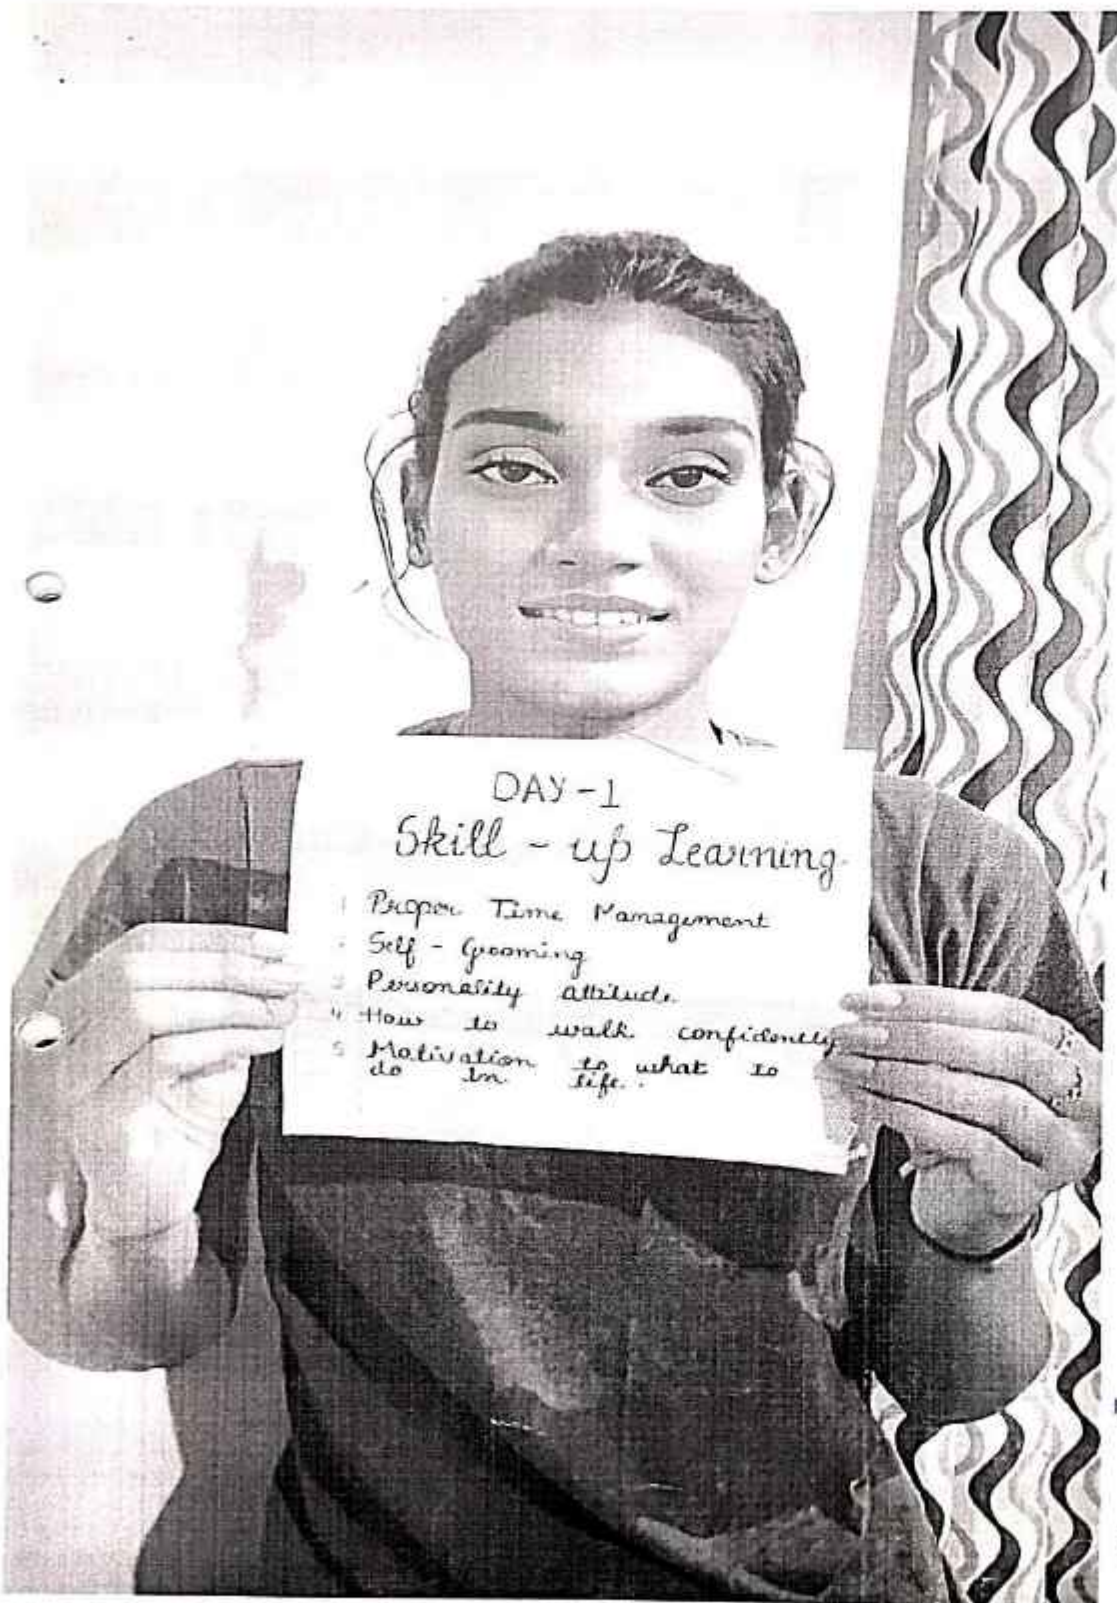 DAY - 1
Skill - up Learning
1 Proper Time Management
Self - Grooming
3 Personality attitude
4 How to walk confidently
5 Motivation to what to
do in life.